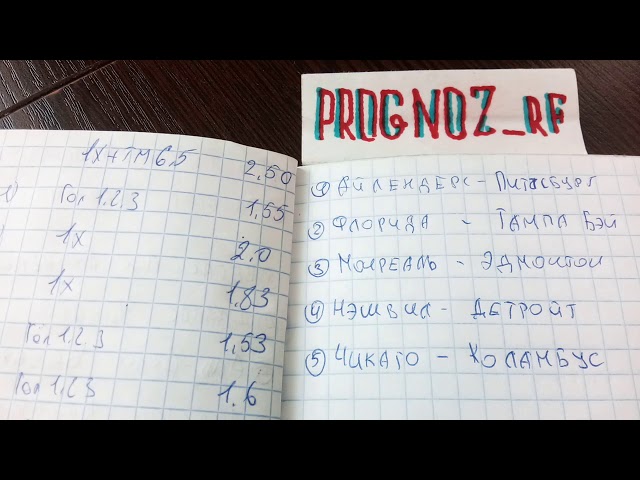 PROGNOZ_RF
1X+TM 6.5 2.50
Гол 1.2.3 1.55
1X 2.0
1X 1.83
Гол 1.2.3 1.53
Гол 1.2.3 1.6
1 АЙЛЕНДЕРС - ПИТТСБУРГ
2 ФЛОРИДА - ТАМПА БЭЙ
3 МОНРЕАЛЬ - ЭДМОНТОН
4 НЭШВИЛ - ДЕТРОЙТ
5 ЧИКАГО - КОЛАМБУС